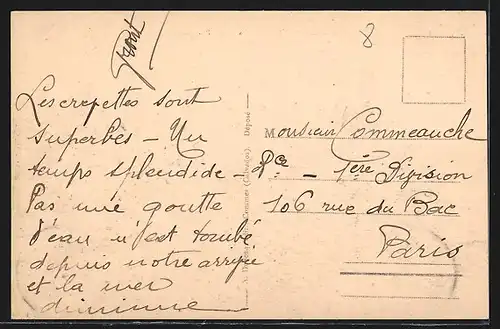 Les crevettes sont
superbes - Un
temps splendide -
Pas une goutte
d'eau n'est tombé
depuis notre arrivée
et la mer
diminue
8
Monsieur Commeauche
- 1ère Division
106 rue du Bac
Paris
Commer (Calvados). Déposé